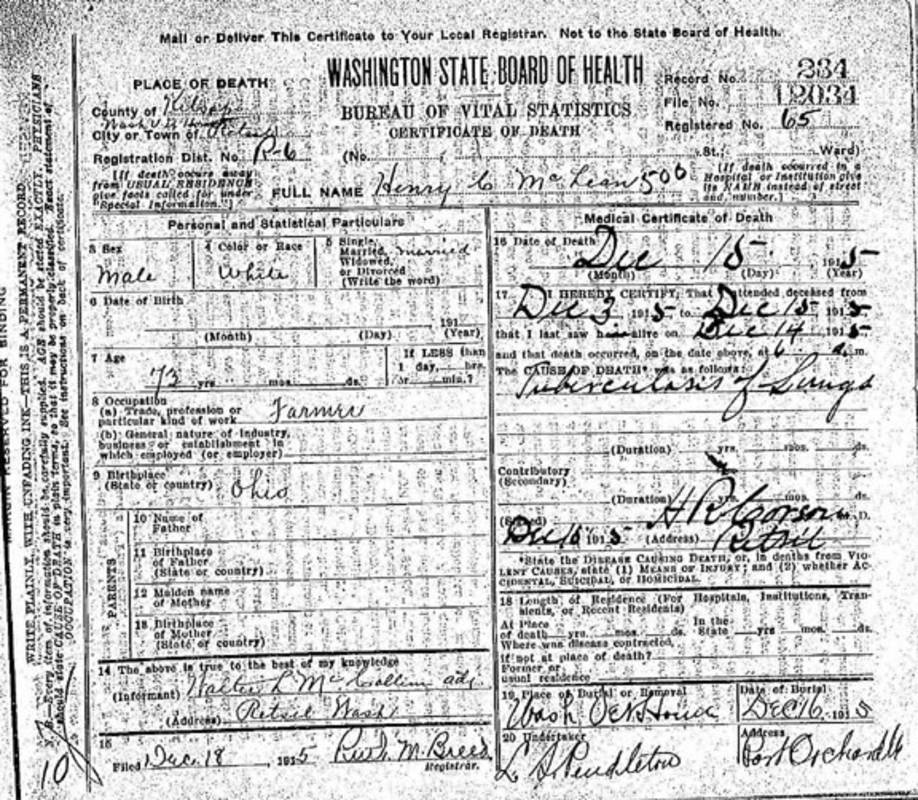 Mail or Deliver This Certificate to Your Local Registrar. Not to the State Board of Health.
WASHINGTON STATE BOARD OF HEALTH
BUREAU OF VITAL STATISTICS
CERTIFICATE OF DEATH
Record No. 234
File No. 12034
Registered No. 65
PLACE OF DEATH
County of Kitsap
City or Town of Retsil
Registration Dist. No. R-6
(No. St.; Ward)
[If death occurs away
from USUAL RESIDENCE
give facts called for under
"Special Information."]
FULL NAME Henry C McLean 500
(If death occurred in a
Hospital or Institution give
its NAME instead of street
and number.)
Personal and Statistical Particulars
3 Sex
Male
4 Color or Race
White
5 Single,
Married,
Widowed,
or Divorced
(Write the word)
married
6 Date of Birth
191
(Month) (Day) (Year)
7 Age
73 yrs. mos. ds.
If LESS than
1 day, hrs.
or min.?
8 Occupation
(a) Trade, profession or
particular kind of work Farmer
(b) General nature of industry,
business or establishment in
which employed (or employer)
9 Birthplace
(State or country) Ohio
PARENTS
10 Name of
Father
11 Birthplace
of Father
(State or country)
12 Maiden name
of Mother
13 Birthplace
of Mother
(State or country)
14 The above is true to the best of my knowledge
(Informant) Walter L McCollum adj.
(Address) Retsil Wash
15
Filed Dec. 18, 1915 Ruth M. Breed
Registrar.
Medical Certificate of Death
16 Date of Death
Dec 15 1915
(Month) (Day) (Year)
17 I HEREBY CERTIFY, That I attended deceased from
Dec 3 1915 to Dec 15 1915
that I last saw him alive on Dec 14 1915
and that death occurred, on the date above, at 6 a. m.
The CAUSE OF DEATH* was as follows:
Tuberculosis of Lungs
(Duration) yrs. mos. ds.
Contributory
(Secondary)
(Duration) yrs. mos. ds.
(Signed) M. D.
Dec 16 1915 (Address) Retsil
*State the DISEASE CAUSING DEATH, or, in deaths from VIO-
LENT CAUSES, state (1) MEANS OF INJURY; and (2) whether AC-
CIDENTAL, SUICIDAL, or HOMICIDAL.
18 Length of Residence (For Hospitals, Institutions, Tran-
sients, or Recent Residents)
At Place
of death yrs. mos. ds.
In the
State yrs. mos. ds.
Where was disease contracted,
if not at place of death?
Former or
usual residence
19 Place of Burial or Removal
Wash Vet Home
Date of Burial
Dec 16 1915
20 Undertaker
L A Pendleton
Address
Port Orchard
MARGIN RESERVED FOR BINDING
WRITE PLAINLY, WITH UNFADING INK—THIS IS A PERMANENT RECORD.
N. B.—Every item of information should be carefully supplied. AGE should be stated EXACTLY. PHYSICIANS
should state CAUSE OF DEATH in plain terms, so that it may be properly classified. Exact statement of
OCCUPATION is very important. See instructions on back of certificate.